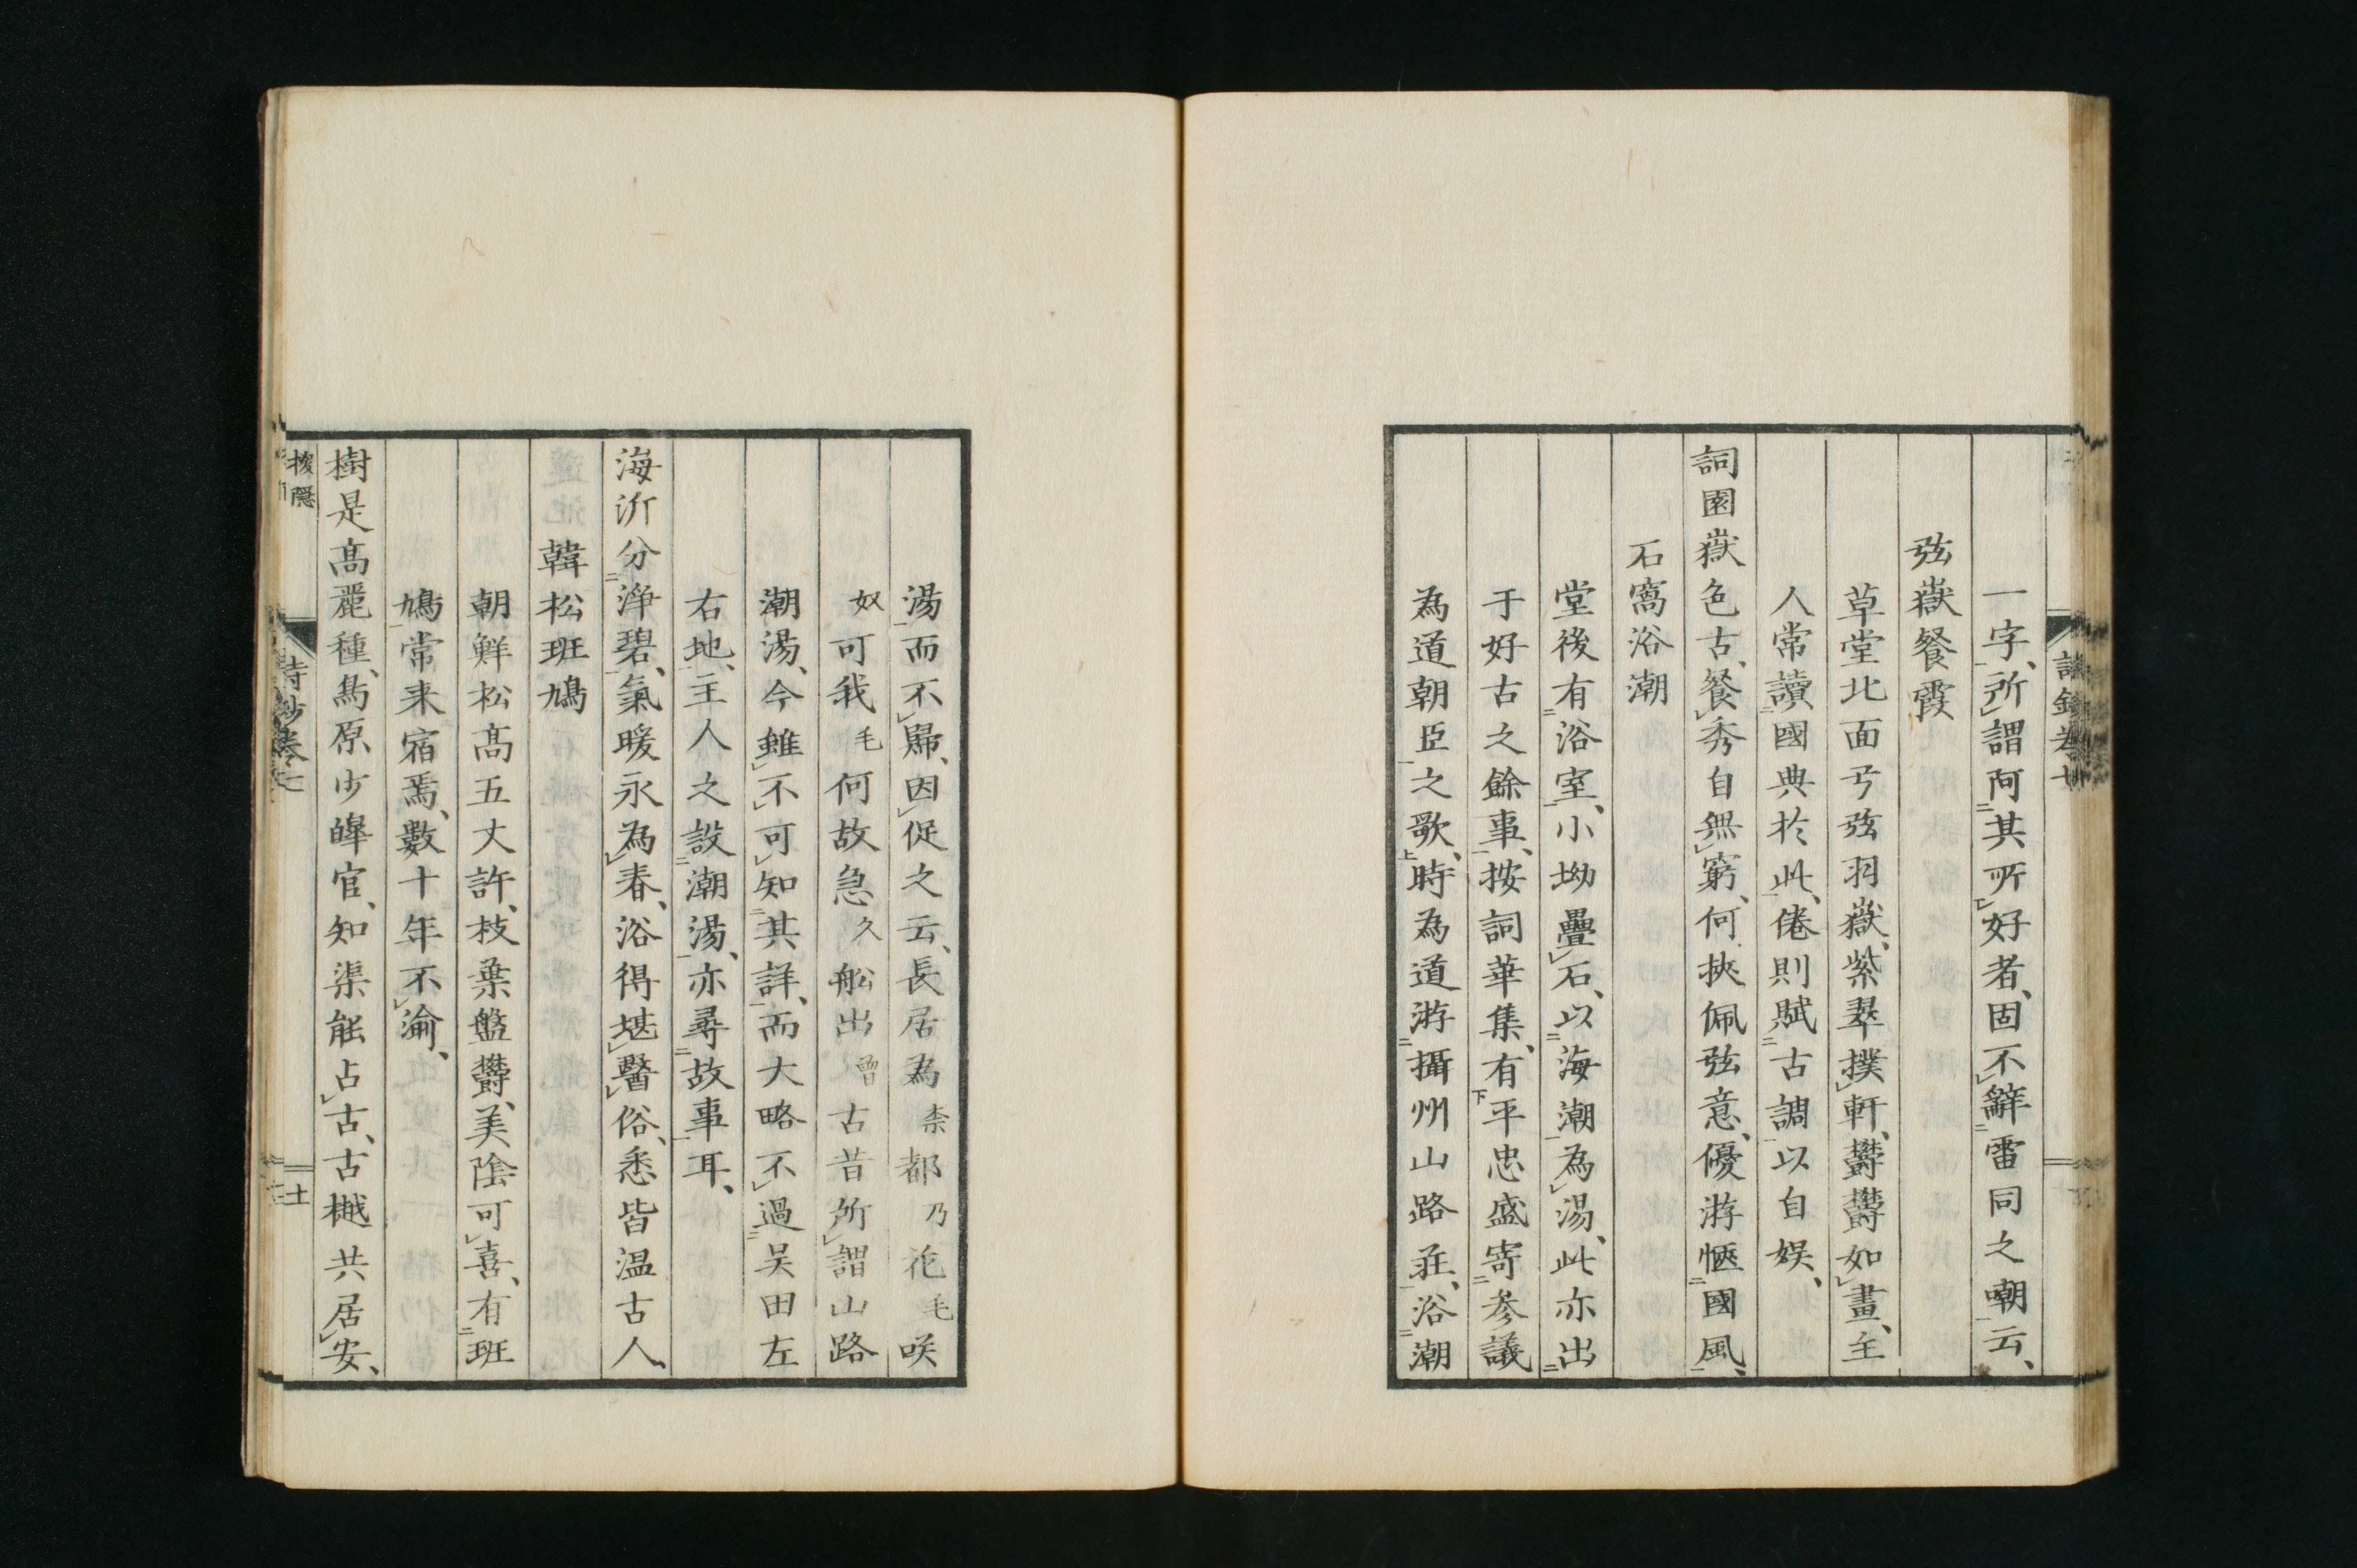 一字、所謂阿其所好者、固不辭雷同之嘲云、
弦嶽餐霞
草堂北面弓弦羽嶽、紫翠撲軒、欝欝如畫、主
人常讀國典於此、倦則賦古調以自娯、
詞園嶽色古、餐秀自無窮、何挾佩弦意、優游愜國風、
石窩浴潮
堂後有浴室、小坳疊石、以海潮為湯、此亦出
于好古之餘事、按詞華集、有平忠盛寄参議
為道朝臣之歌、時為道游攝州山路莊、浴潮
湯而不歸、因促之云、長居為柰都乃花毛咲
奴可我毛何故急久舩出曾古昔所謂山路
潮湯、今雖不可知其詳、而大略不過吴田左
右地、主人之設潮湯、亦尋故事耳、
海沂分淨碧、氣暖永為春、浴得堪醫俗、悉皆温古人、
韓松班鳩
朝鮮松高五丈許、枝葉盤欝、美陰可喜、有班
鳩常来宿焉、數十年不渝、
樹是高麗種、鳥原少皞官、知渠能占古、古樾共居安、
詩鈔卷
十一